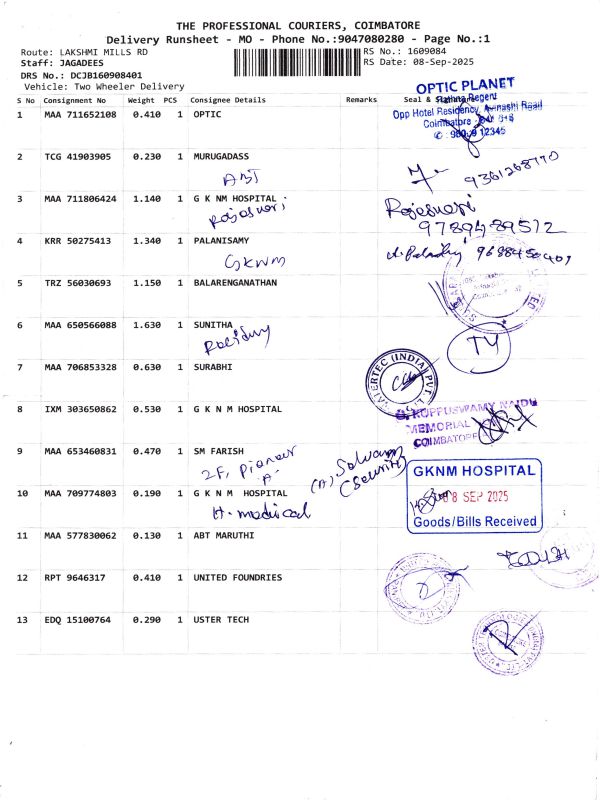 THE PROFESSIONAL COURIERS, COIMBATORE
Delivery Runsheet - MO - Phone No.:9047080280 - Page No.:1
Route: LAKSHMI MILLS RD RS No.: 1609084
Staff: JAGADEES RS Date: 08-Sep-2025
DRS No.: DCJB160908401
Vehicle: Two Wheeler Delivery
S No Consignment No Weight PCS Consignee Details Remarks Seal &
OPTIC PLANET
Rathna Regent
Opp Hotel Residency, Avinashi Road
Coimbatore
1 MAA 711652108 0.410 1 OPTIC
2 TCG 41903905 0.230 1 MURUGADASS
9361268770
3 MAA 711806424 1.140 1 G K NM HOSPITAL
Rajeswari
Rajeswari
9789489512
4 KRR 50275413 1.340 1 PALANISAMY
GKNM
5 TRZ 56030693 1.150 1 BALARENGANATHAN
6 MAA 650566088 1.630 1 SUNITHA
7 MAA 706853328 0.630 1 SURABHI
WATERTEC (INDIA) PVT
8 IXM 303650862 0.530 1 G K N M HOSPITAL
G. KUPPUSWAMY NAIDU
MEMORIAL
COIMBATORE
9 MAA 653460831 0.470 1 SM FARISH
2F, Pioneer
(Security)
10 MAA 709774803 0.190 1 G K N M HOSPITAL
H. medical
GKNM HOSPITAL
08 SEP 2025
Goods/Bills Received
11 MAA 577830062 0.130 1 ABT MARUTHI
12 RPT 9646317 0.410 1 UNITED FOUNDRIES
13 EDQ 15100764 0.290 1 USTER TECH